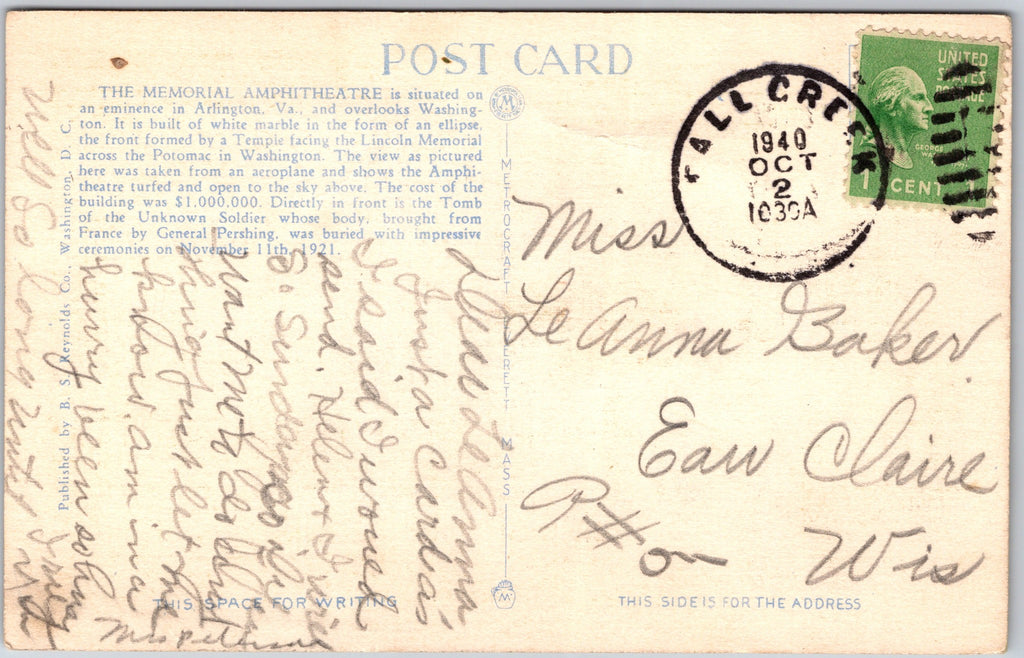 POST CARD
THE MEMORIAL AMPHITHEATRE is situated on
an eminence in Arlington, Va., and overlooks Washing-
ton. It is built of white marble in the form of an ellipse,
the front formed by a Temple facing the Lincoln Memorial
across the Potomac in Washington. The view as pictured
here was taken from an aeroplane and shows the Amphi-
theatre turfed and open to the sky above. The cost of the
building was $1,000,000. Directly in front is the Tomb
of the Unknown Soldier whose body, brought from
France by General Pershing, was buried with impressive
ceremonies on November 11th, 1921.
Published by B. S. Reynolds Co., Washington, D. C.
METROCRAFT EVERETT MASS
M
FALL CREEK
1940
OCT
2
1030A
UNITED
STATES
POSTAGE
GEORGE
1 CENT 1
Miss
LeAnna Baker
Eau Claire
R#
Wis
Dear LeAnna
Just a card as
I said I would
send. Helen &
So Sunday so
want me to do
thing just let me
hurry been so
Well So long until
Mrs Peterson
M
THIS SPACE FOR WRITING
THIS SIDE IS FOR THE ADDRESS